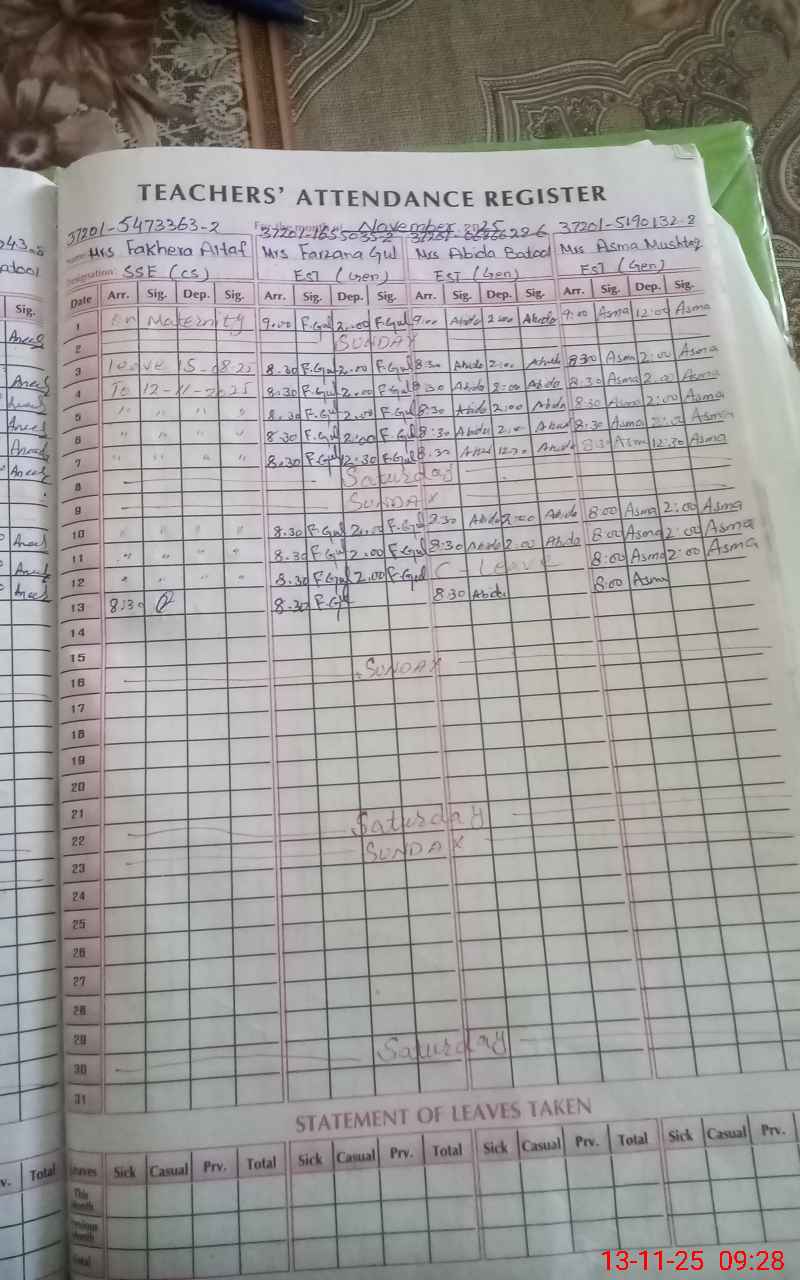 TEACHERS' ATTENDANCE REGISTER
37201-5473363-2 November 2025 37201-5190132-8
Mrs Fakhera Altaf Mrs Farzana Gul Mrs Abida Batool Mrs Asma Mushtaq
Designation: SSE (CS) EST (Gen) EST (Gen) EST (Gen)
Date Arr. Sig. Dep. Sig. Arr. Sig. Dep. Sig. Arr. Sig. Dep. Sig. Arr. Sig. Dep. Sig.
1 On Maternity 9.00 F.Gul 2.00 F.Gul 9:00 Abida 2:00 Abida 9:00 Asma 12:00 Asma
2 SUNDAY
3 leave 15-08-25 8.30 F.Gul 2.00 F.Gul 8:30 Abida 2:00 Abida 8:30 Asma 2:00 Asma
4 To 12-11-2025 8.30 F.Gul 2.00 F.Gul 8:30 Abida 2:00 Abida 8:30 Asma 2:00 Asma
5 " " " " 8.30 F.Gul 2.00 F.Gul 8:30 Abida 2:00 Abida 8:30 Asma 2:00 Asma
6 " " " " 8.30 F.Gul 2:00 F.Gul 8:30 Abida 2:00 Abida 8:30 Asma 2:00 Asma
7 " " " " 8.30 F.Gul 12.30 F.Gul 8:30 Abida Abida 8:30 Asma 12:30 Asma
8 Saturday
9 SUNDAY
10 " " " " 8.30 F.Gul 2.00 F.Gul Abida 2:00 Abida 8:00 Asma 2:00 Asma
11 " " " " 8.30 F.Gul 2.00 F.Gul 8:30 Abida 2:00 Abida 8:00 Asma 2:00 Asma
12 " " " " 8.30 F.Gul 2.00 F.Gul C-Leave 8:00 Asma 2:00 Asma
13 8:30 8.30 F.Gul 8:30 Abida 8:00 Asma
14
15
16 SUNDAY
17
18
19
20
21
22 Saturday
23 SUNDAY
24
25
26
27
28
29
30 Saturday
31
STATEMENT OF LEAVES TAKEN
Leaves Sick Casual Prv. Total Sick Casual Prv. Total Sick Casual Prv. Total Sick Casual Prv.
This Month
Previous Month
Total
Sig.
Total
13-11-25 09:28